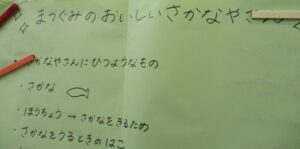 まつぐみのおいしいさかなやさん
かなやさんにひつようなもの
・さかな
・ほうちょう→さかなをきるため
・さかなをうるときのはこ